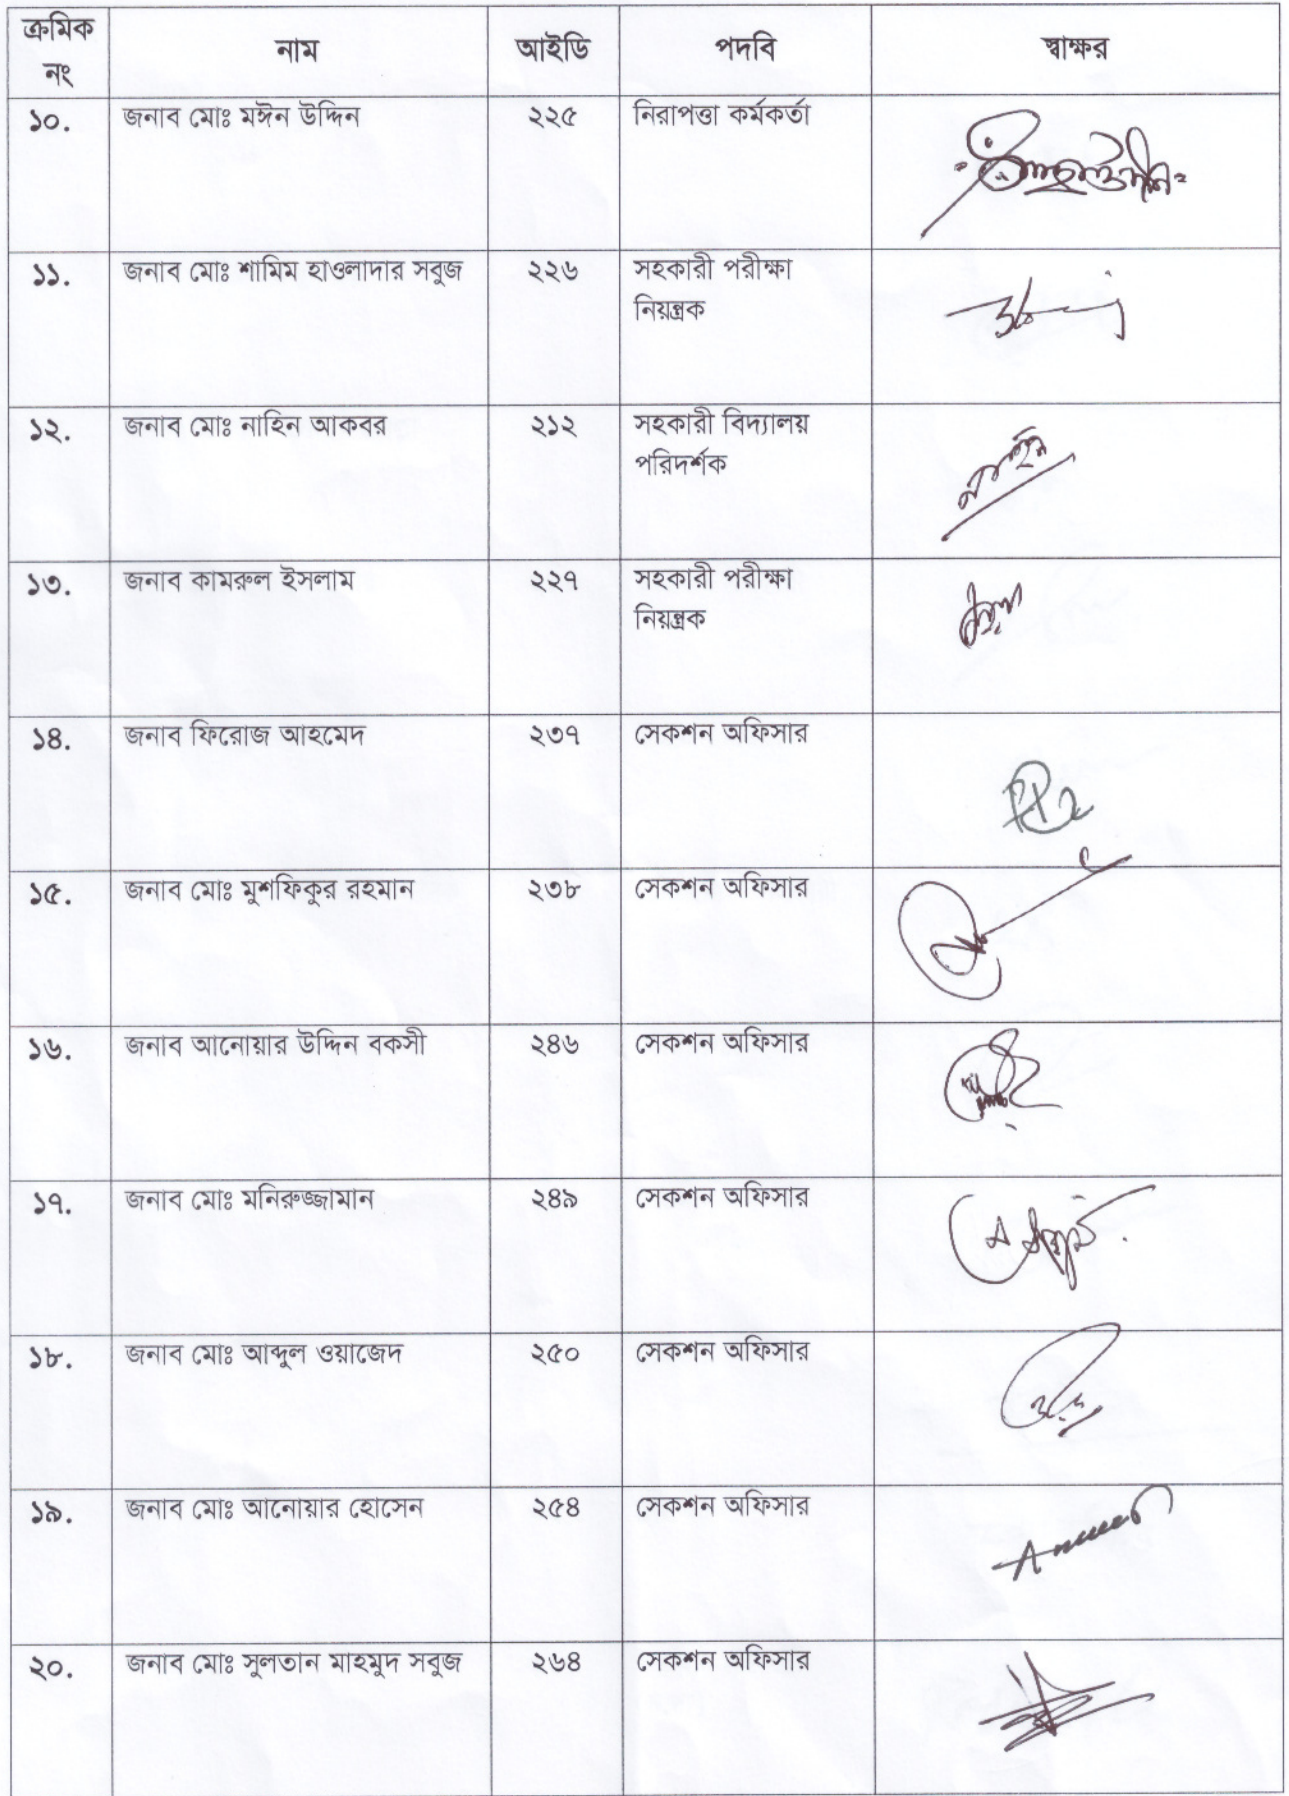 ক্রমিক নং নাম আইডি পদবি স্বাক্ষর
১০. জনাব মোঃ মঈন উদ্দিন ২২৫ নিরাপত্তা কর্মকর্তা
১১. জনাব মোঃ শামিম হাওলাদার সবুজ ২২৬ সহকারী পরীক্ষা
নিয়ন্ত্রক
১২. জনাব মোঃ নাহিন আকবর ২১২ সহকারী বিদ্যালয়
পরিদর্শক
১৩. জনাব কামরুল ইসলাম ২২৭ সহকারী পরীক্ষা
নিয়ন্ত্রক
১৪. জনাব ফিরোজ আহমেদ ২৩৭ সেকশন অফিসার
১৫. জনাব মোঃ মুশফিকুর রহমান ২৩৮ সেকশন অফিসার
১৬. জনাব আনোয়ার উদ্দিন বকসী ২৪৬ সেকশন অফিসার
১৭. জনাব মোঃ মনিরুজ্জামান ২৪৯ সেকশন অফিসার
১৮. জনাব মোঃ আব্দুল ওয়াজেদ ২৫০ সেকশন অফিসার
১৯. জনাব মোঃ আনোয়ার হোসেন ২৫৪ সেকশন অফিসার
২০. জনাব মোঃ সুলতান মাহমুদ সবুজ ২৬৪ সেকশন অফিসার